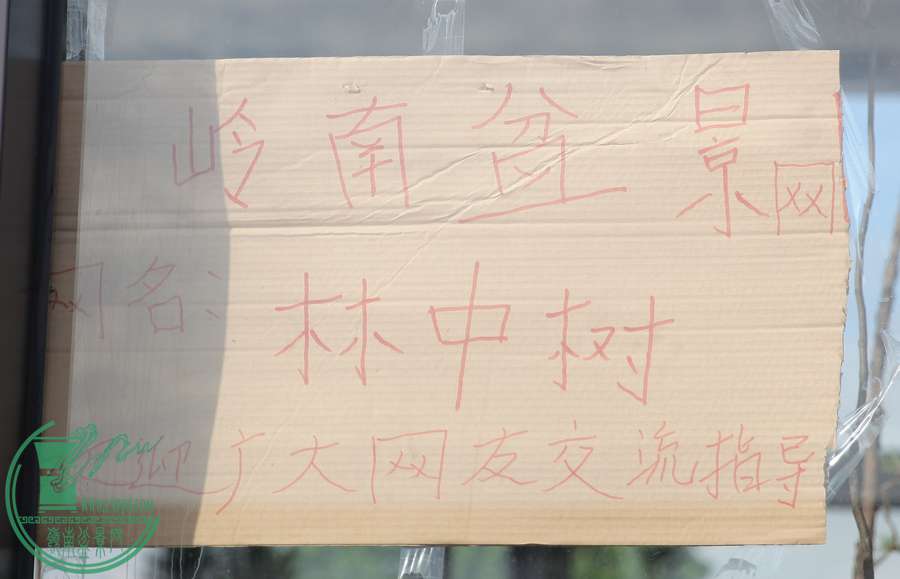 岭南盆景网
网名：林中树
欢迎广大网友交流指导
嶺南盆景网